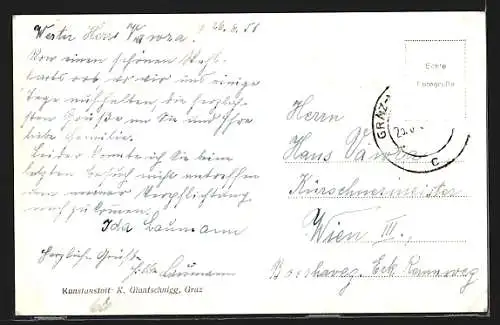 Werter Herr Vawra! 26.6.51
Von einen schönen Wahl-
fahrtsort wo wir uns einige
Tage aufhalten die herzlich-
sten Grüße an Sie und Ihre
liebe Familie.
Leider konnte ich Sie beim
letzten Besuch nicht antreffen
um meiner Verpflichtung
nach zu kommen.
Ida Baumann
Herzliche Grüße
Baumann
Kunstanstalt K. Glantschnigg, Graz
Echte
Fotografie
GRAZ
C
Herrn
Hans Vawra
Kürschnermeister
Wien III,
Eck Rennweg